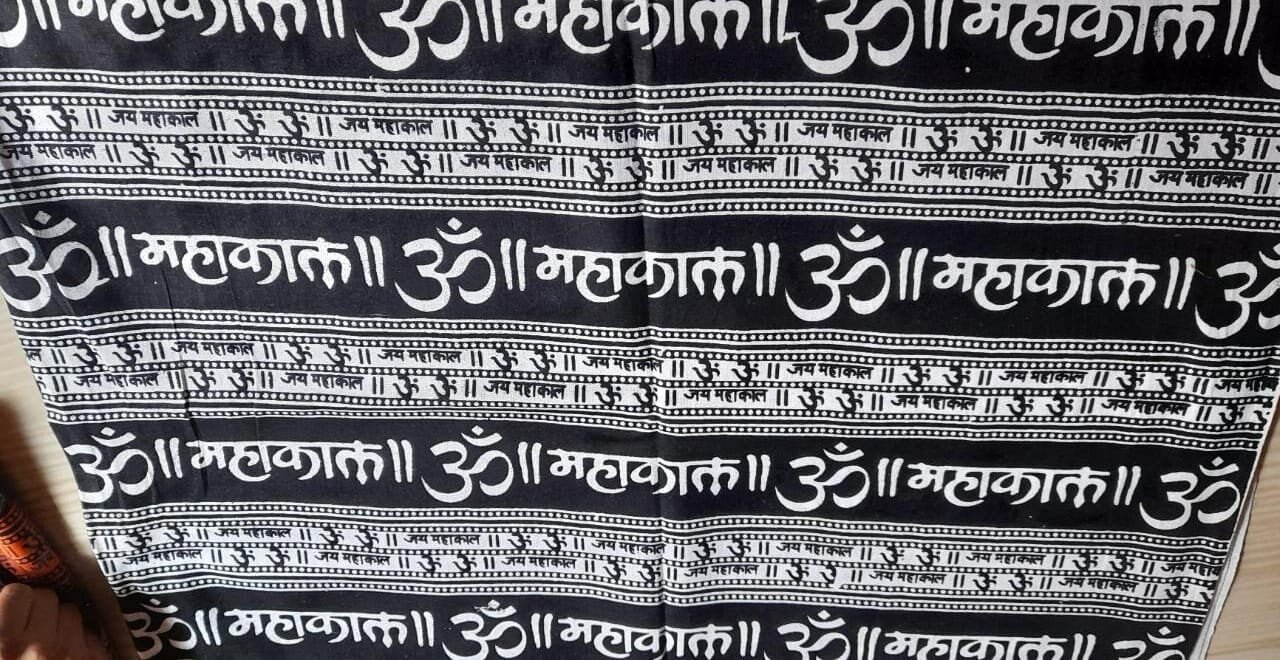 ॥ महाकाल ॥ ॐ ॥ महाकाल ॥ ॐ ॥ महाकाल ॥
ॐ ॐ ॥ जय महाकाल ॥ ॐ ॐ ॥ जय महाकाल ॥ ॐ ॐ ॥ जय महाकाल ॥ ॐ ॐ ॥ जय महाकाल ॥ ॐ ॐ ॥ जय महाकाल ॥ ॐ ॐ ॥
जय महाकाल ॥ ॐ ॐ ॥ जय महाकाल ॥ ॐ ॐ ॥ जय महाकाल ॥ ॐ ॐ ॥ जय महाकाल ॥ ॐ ॐ ॥ जय महाकाल ॥ ॐ ॐ ॥ जय महाकाल ॥
ॐ ॥ महाकाल ॥ ॐ ॥ महाकाल ॥ ॐ ॥ महाकाल ॥ ॐ
॥ ॐ ॐ ॥ जय महाकाल ॥ ॐ ॐ ॥ जय महाकाल ॥ ॐ ॐ ॥ जय महाकाल ॥ ॐ ॐ ॥ जय महाकाल ॥ ॐ ॐ ॥ जय महाकाल ॥ ॐ ॐ ॥ जय
॥ जय महाकाल ॥ ॐ ॐ ॥ जय महाकाल ॥ ॐ ॐ ॥ जय महाकाल ॥ ॐ ॐ ॥ जय महाकाल ॥ ॐ ॐ ॥ जय महाकाल ॥ ॐ ॐ ॥ जय महाकाल ॥ ॐ
ॐ ॥ महाकाल ॥ ॐ ॥ महाकाल ॥ ॐ ॥ महाकाल ॥ ॐ
ॐ ॐ ॥ जय महाकाल ॥ ॐ ॐ ॥ जय महाकाल ॥ ॐ ॐ ॥ जय महाकाल ॥ ॐ ॐ ॥ जय महाकाल ॥ ॐ ॐ ॥ जय महाकाल ॥ ॐ ॐ ॥ जय
महाकाल ॥ ॐ ॐ ॥ जय महाकाल ॥ ॐ ॐ ॥ जय महाकाल ॥ ॐ ॐ ॥ जय महाकाल ॥ ॐ ॥ जय महाकाल ॥ ॐ ॐ ॥ जय महाकाल ॥ ॐ
ॐ ॥ महाकाल ॥ ॐ ॥ महाकाल ॥ ॐ ॥ महाकाल ॥ ॐ